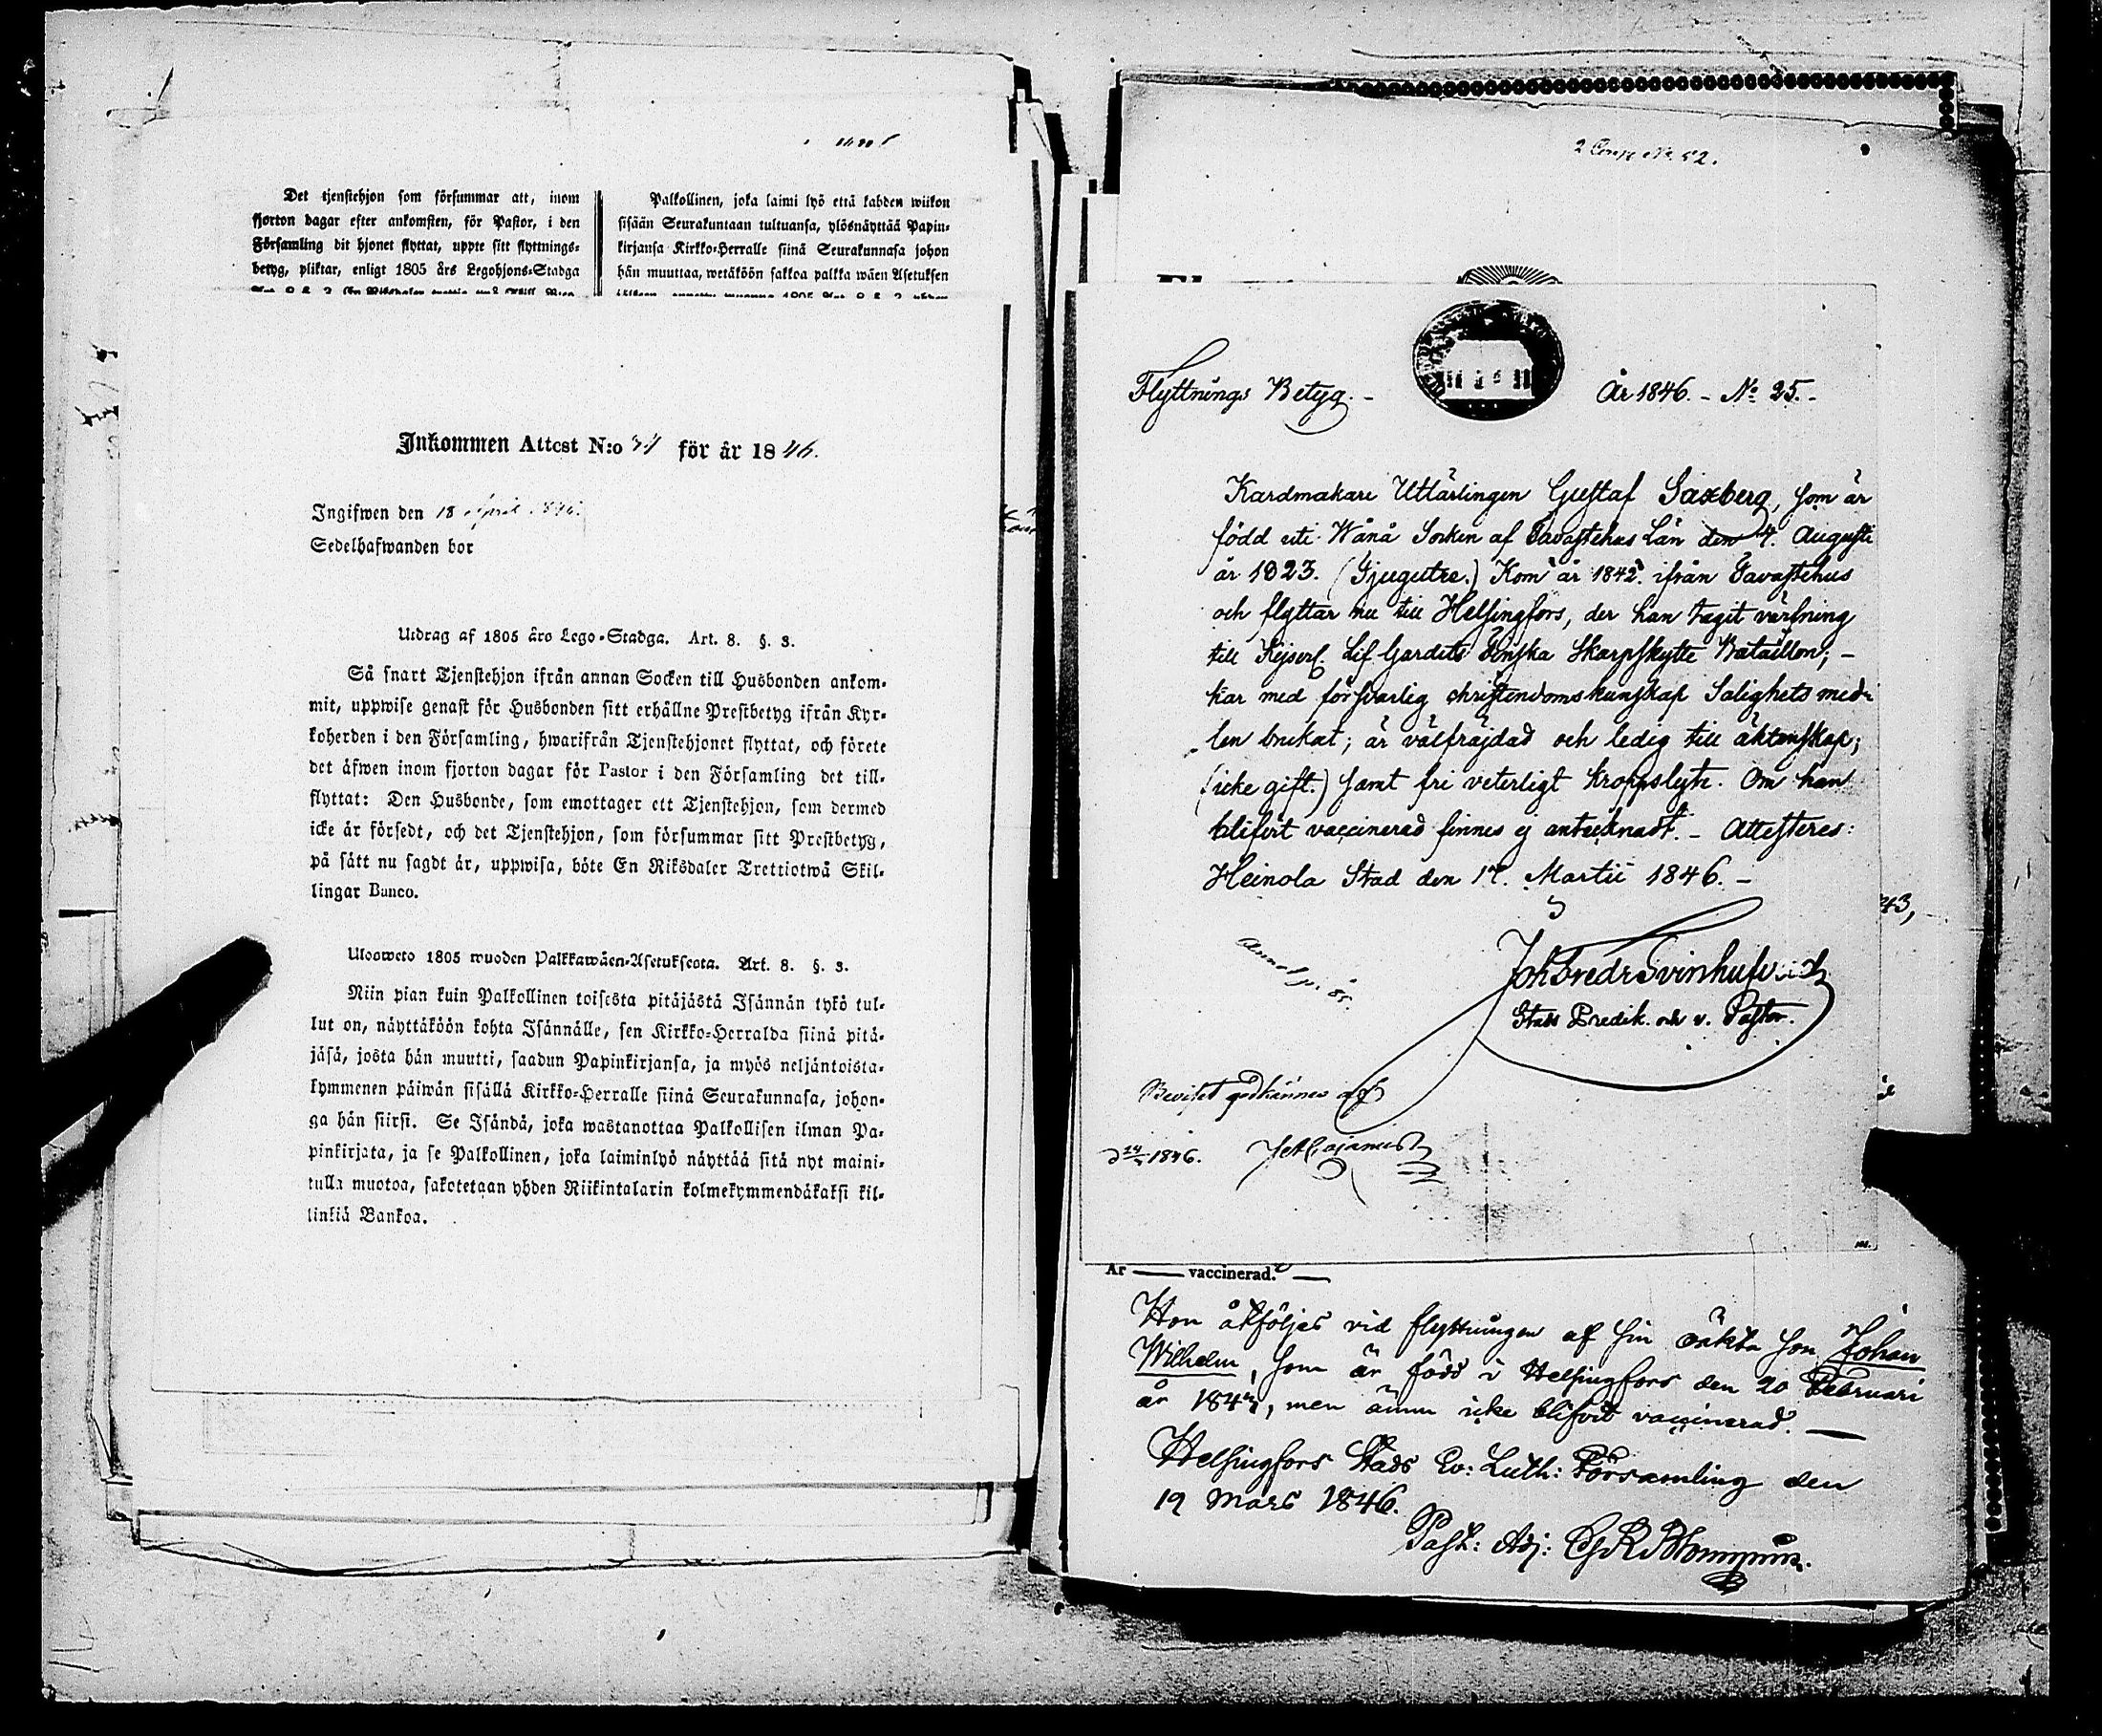 Det tjenstehjon som försummar att, inom
fjorton dagar efter ankomsten, för Pastor, i den
Församling dit hjonet flyttat, uppte sitt flyttnings-
betyg, pliktar, enligt 1805 års Legohjons-Stadga
Palkollinen, joka laimi lyö että kahden wiikon
sisään Seurakuntaan tultuansa, ylösnäyttää Papin-
kirjansa Kirkko-Herralle siinä Seurakunnasa johon
hän muuttaa, wetäköön sakkoa palkka wäen Asetuksen
Inkommen Attest N:o för år 1846.
Ingifwen den 18 April 1846.
Sedelhafwanden bor
Utdrag af 1805 års Lego-Stadga. Art. 8. §. 3.
Så snart Tjenstehjon ifrån annan Socken till Husbonden ankom-
mit, uppwise genast för Husbonden sitt erhållne Prestbetyg ifrån Kyr-
koherden i den Församling, hwarifrån Tjenstehjonet flyttat, och förete
det äfwen inom fjorton dagar för Pastor i den Församling det till-
flyttat: Den Husbonde, som emottager ett Tjenstehjon, som dermed
icke är försedt, och det Tjenstehjon, som försummar sitt Prestbetyg,
på sätt nu sagdt är, uppwisa, böte En Riksdaler Trettiotwå Skil-
lingar Banco.
Ulosweto 1805 wuoden Palkkawäen-Asetuksesta. Art. 8. §. 3.
Niin pian kuin Palkollinen toisesta pitäjästä Isännän tykö tul-
lut on, näyttäköön kohta Isännälle, sen Kirkko-Herralda siinä pitä-
jäsä, josta hän muutti, saadun Papinkirjansa, ja myös neljäntoista-
kymmenen päiwän sisällä Kirkko-Herralle siinä Seurakunnasa, johon-
ga hän siirsi. Se Isändä, joka wastanottaa Palkollisen ilman Pa-
pinkirjata, ja se Palkollinen, joka laiminlyö näyttää sitä nyt maini-
tulla muotoa, sakotetaan yhden Riikintalarin kolmekymmendäkaksi kil-
linkiä Bankoa.
2 Comp. No. 52.
Flyttnings Betyg. - År 1846. - No 25. -
Kardmakare Utlärlingen Gustaf Saxberg, som är
född uti Wånå Socken af Tavastehus Län den 4. Augusti
år 1823. (Tjugutre.) Kom år 1842. ifrån Tavastehus
och flyttar nu till Helsingfors, der han tagit värfning
till Kejserl. Lif Gardets Finska Skarpskytte Bataillon; -
har med försvarlig christendomskunskap Salighets med-
len brukat; är välfräjdad och ledig till äktenskap;
(icke gift.) samt fri veterligt kroppslyte. Om han
blifvit vaccinerad finnes ej antecknadt. - Attesteres:
Heinola Stad den 17. Martii 1846. -
Joh Fredr Svinhufvud
Stads Predik. och v. Pastor.
Beviset godkännes af
1846.
43,
Är — vaccinerad. —
Hon åtföljes vid flyttningen af sin oäkta son Johan
Wilhelm, som är född i Helsingfors den 20 Februari
år 1847, men ännu icke blifvit vaccinerad. —
Helsingfors Stads Ev: Luth: Församling den
19 Mars 1846.
Past: Adj: